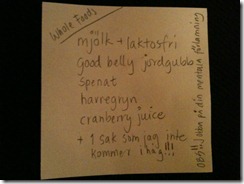 Whole Foods
mjölk + laktosfri
Good belly jordgubb
spenat
havregryn
cranberry juice
+ 1 sak som jag inte
kommer ihåg!!!
OBS!! Jobba på din mentala förlamning